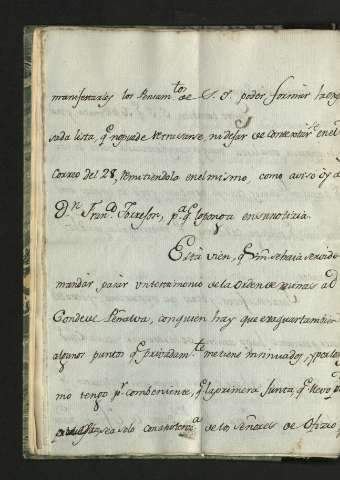 manifestarles los Pensam.tos de S. S. poder formar la expre
sada lista, q.e no puede retrasarse, ni dejar de contextar.se en el
Correo del 28, remitiendola en el mismo, como aviso oy a
D.n Fran.co Torresor, p.a q.e lo ponga en su noticia.
Està vien, q.e Vm. se haia servido
mandar, pasar un testimonio de la Orden de minas al
Conde de Peñalva, con quien hay que evaquar tambien
algunos puntos q.e privadam.te me tiene insinuados, y por lo
mo tengo p.r combeniente, q.e la primera Junta, q.e
sea solo con asistenz.a de los Señores de Ofizio